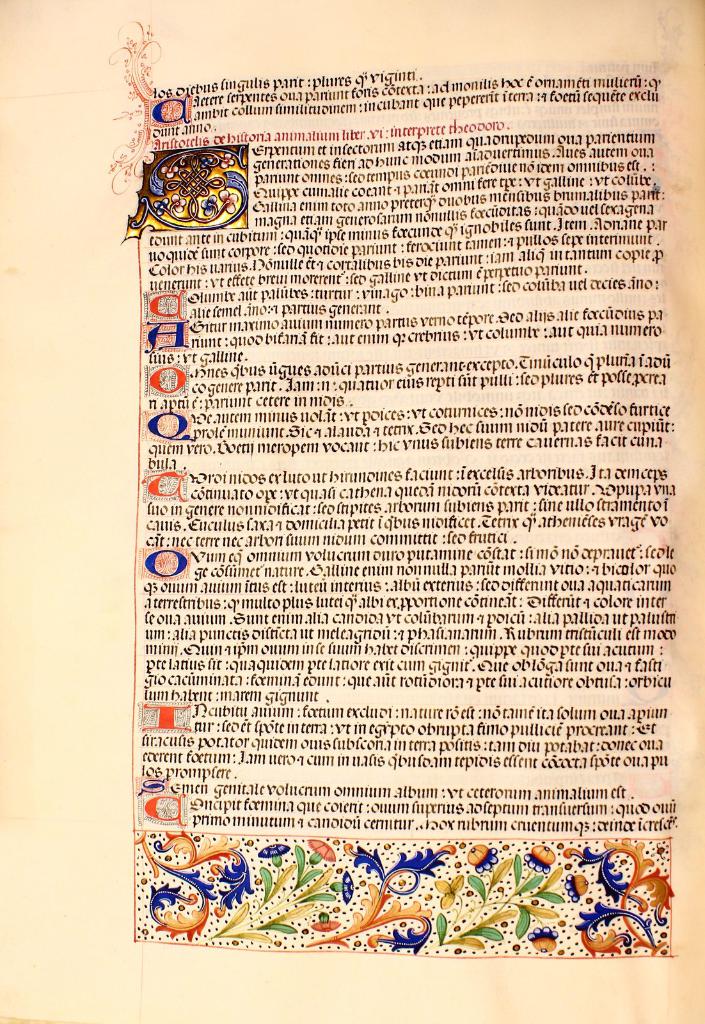 los diebus singulis parit : plures qͣ viginti .
Caetere serpentes oua pariunt foris cōtexta : ad monilis hoc ē ornamēti mulierū : q
ambit collum similitudinem : incubant que pepererit ī terra : ⁊ foetū sequēte exclu
dunt anno .
Aristotelis de historia animalium liber . vi : interprete theodoro .
SErpentum et insectorum atqȝ etiam quadrupedum oua parientium
generationes fieri ad hunc modum aīaduertimus . Aues autem oua
pariunt omnes : sed tempus coeundi pariēdiue nō idem omnibus est .
Quippe cum alie coeant ⁊ pariāt omni fere tp̄e : vt galline : vt colūbe .
Gallina enim toto anno preterqͣ duobus mensibus brumalibus parit :
magna etiam generosarum nonnullis foecūditas : quādo uel sexagena
edunt ante in cubitum : quāqͣ ipse minus foecunde qͣ ignobiles sunt . Item . Adriane par
uo quidē sunt corpore : sed quotidie pariunt : ferociunt tamen : ⁊ pullos sepe interimunt .
Color his uarius . Nōnulle et ⁊ cortalibus bis die pariunt : iam aliq̄ in tantum copie ꝓ
uenerunt : vt effete breui morerent̄ : sed galline vt dictum ē perpetuo pariunt .
Columbe aūt palūbes : turtur : vinago : bina pariunt : sed colūba uel decies āno :
alie semel āno : ⁊ partus generant .
AGitur maximo auium numero partus verno tēpore . Sed aliis alie foecūdius pa
riunt : quod bifariā fit : aut enim qͣ crebrius : vt columbe : aut quia numero
sius : vt galline .
Omnes qͥbus ūgues adūci partus generant excepto . Tinūculo q̄ plurīa ī adū
co genere parit . Iam : n̄ : quatuor eius repti sūt pulli : sed plures et posse perea
ri aptū ē : pariunt cetere in nidis .
Que autem minus uolāt : vt pdices : vt coturnices : nō nidis sed cōdēso furtice
prolē muniunt . Sic ⁊ alauda ⁊ tetrix . Sed hec suum nidū patere aure cupiūt :
quem vero . Boetij meropem vocant : hic vnus subiens terre cauernas facit cuna
bula .
CYroi nidos ex luto ut hirundines faciunt : ī excelsis arboribus . Ita deinceps
cōtinuato ope : vt quasi cathena quedā nidorū cōtexta videatur . Vpupa vna
suo in genere non nidificat : sed stipites arborum subiens parit : sine ullo stramento ī
cauis . Cuculus saxa ⁊ domicilia petit ī qͥbus nidificet . Tetrix qͣ athenieses vragē vo
cāt : nec terre nec arbori suum nidum committit : sed frutici .
OVum eq̄ omnium volucrum duro putamine cōstat : si mō nō deprauet̄ : sed le
ge cōsumet nature . Galline enim non nulla pariūt mollia vitio : ⁊ bicolor quo
qȝ ouum auium ītus est : luteū interius : albū exterius : sed differunt oua aquaticarum
a terrestribus : qͣ multo plus lutei qͣ albi ex pportione cōtineāt : Differūt ⁊ colore inter
se oua auium . Sunt enim alia candida vt colūbarum ⁊ pdicū : alia pallida ut palustri
um : alia punctis distīcta ut meleagridū : ⁊ phasianarum . Rubrum tīstūculi est modo
minij . Quin ⁊ ip̄m ouum in se suum habet discrimen : quippe quod pte sui acutum :
pte latius sit : qua quidem pte latiore exit cum gignit̄ . Que oblōga sunt oua ⁊ fasti
gio cacuminata : foeminā edunt : que aūt rotūdiora ⁊ pte sui acutiore obtusa : orbicu
lum habent : marem gignunt .
INcubitu auium : foetum excludi : nature rō est : nō tamē ita solum oua apiun
tur : sed et spōte in terra : vt in egypto obrupta fimo pulliciē procreant : Et
siracusis potator quidem ouis sub scoria in terra positis : tam diu potabat : donec oua
ederent foetum : Iam uero ⁊ cum in uasis qͥbusdam tepidis essent cōcocta spōte oua pu
los prompsere .
Semen genitale volucrum omnium album : vt ceterorum animalium est .
COncipit foemina que coierit : ouum superius ad septum transuersum : quod ouū
primo minutum ⁊ candidū cernitur . Mox rubrum cruentumqȝ : deinde īcrescēs